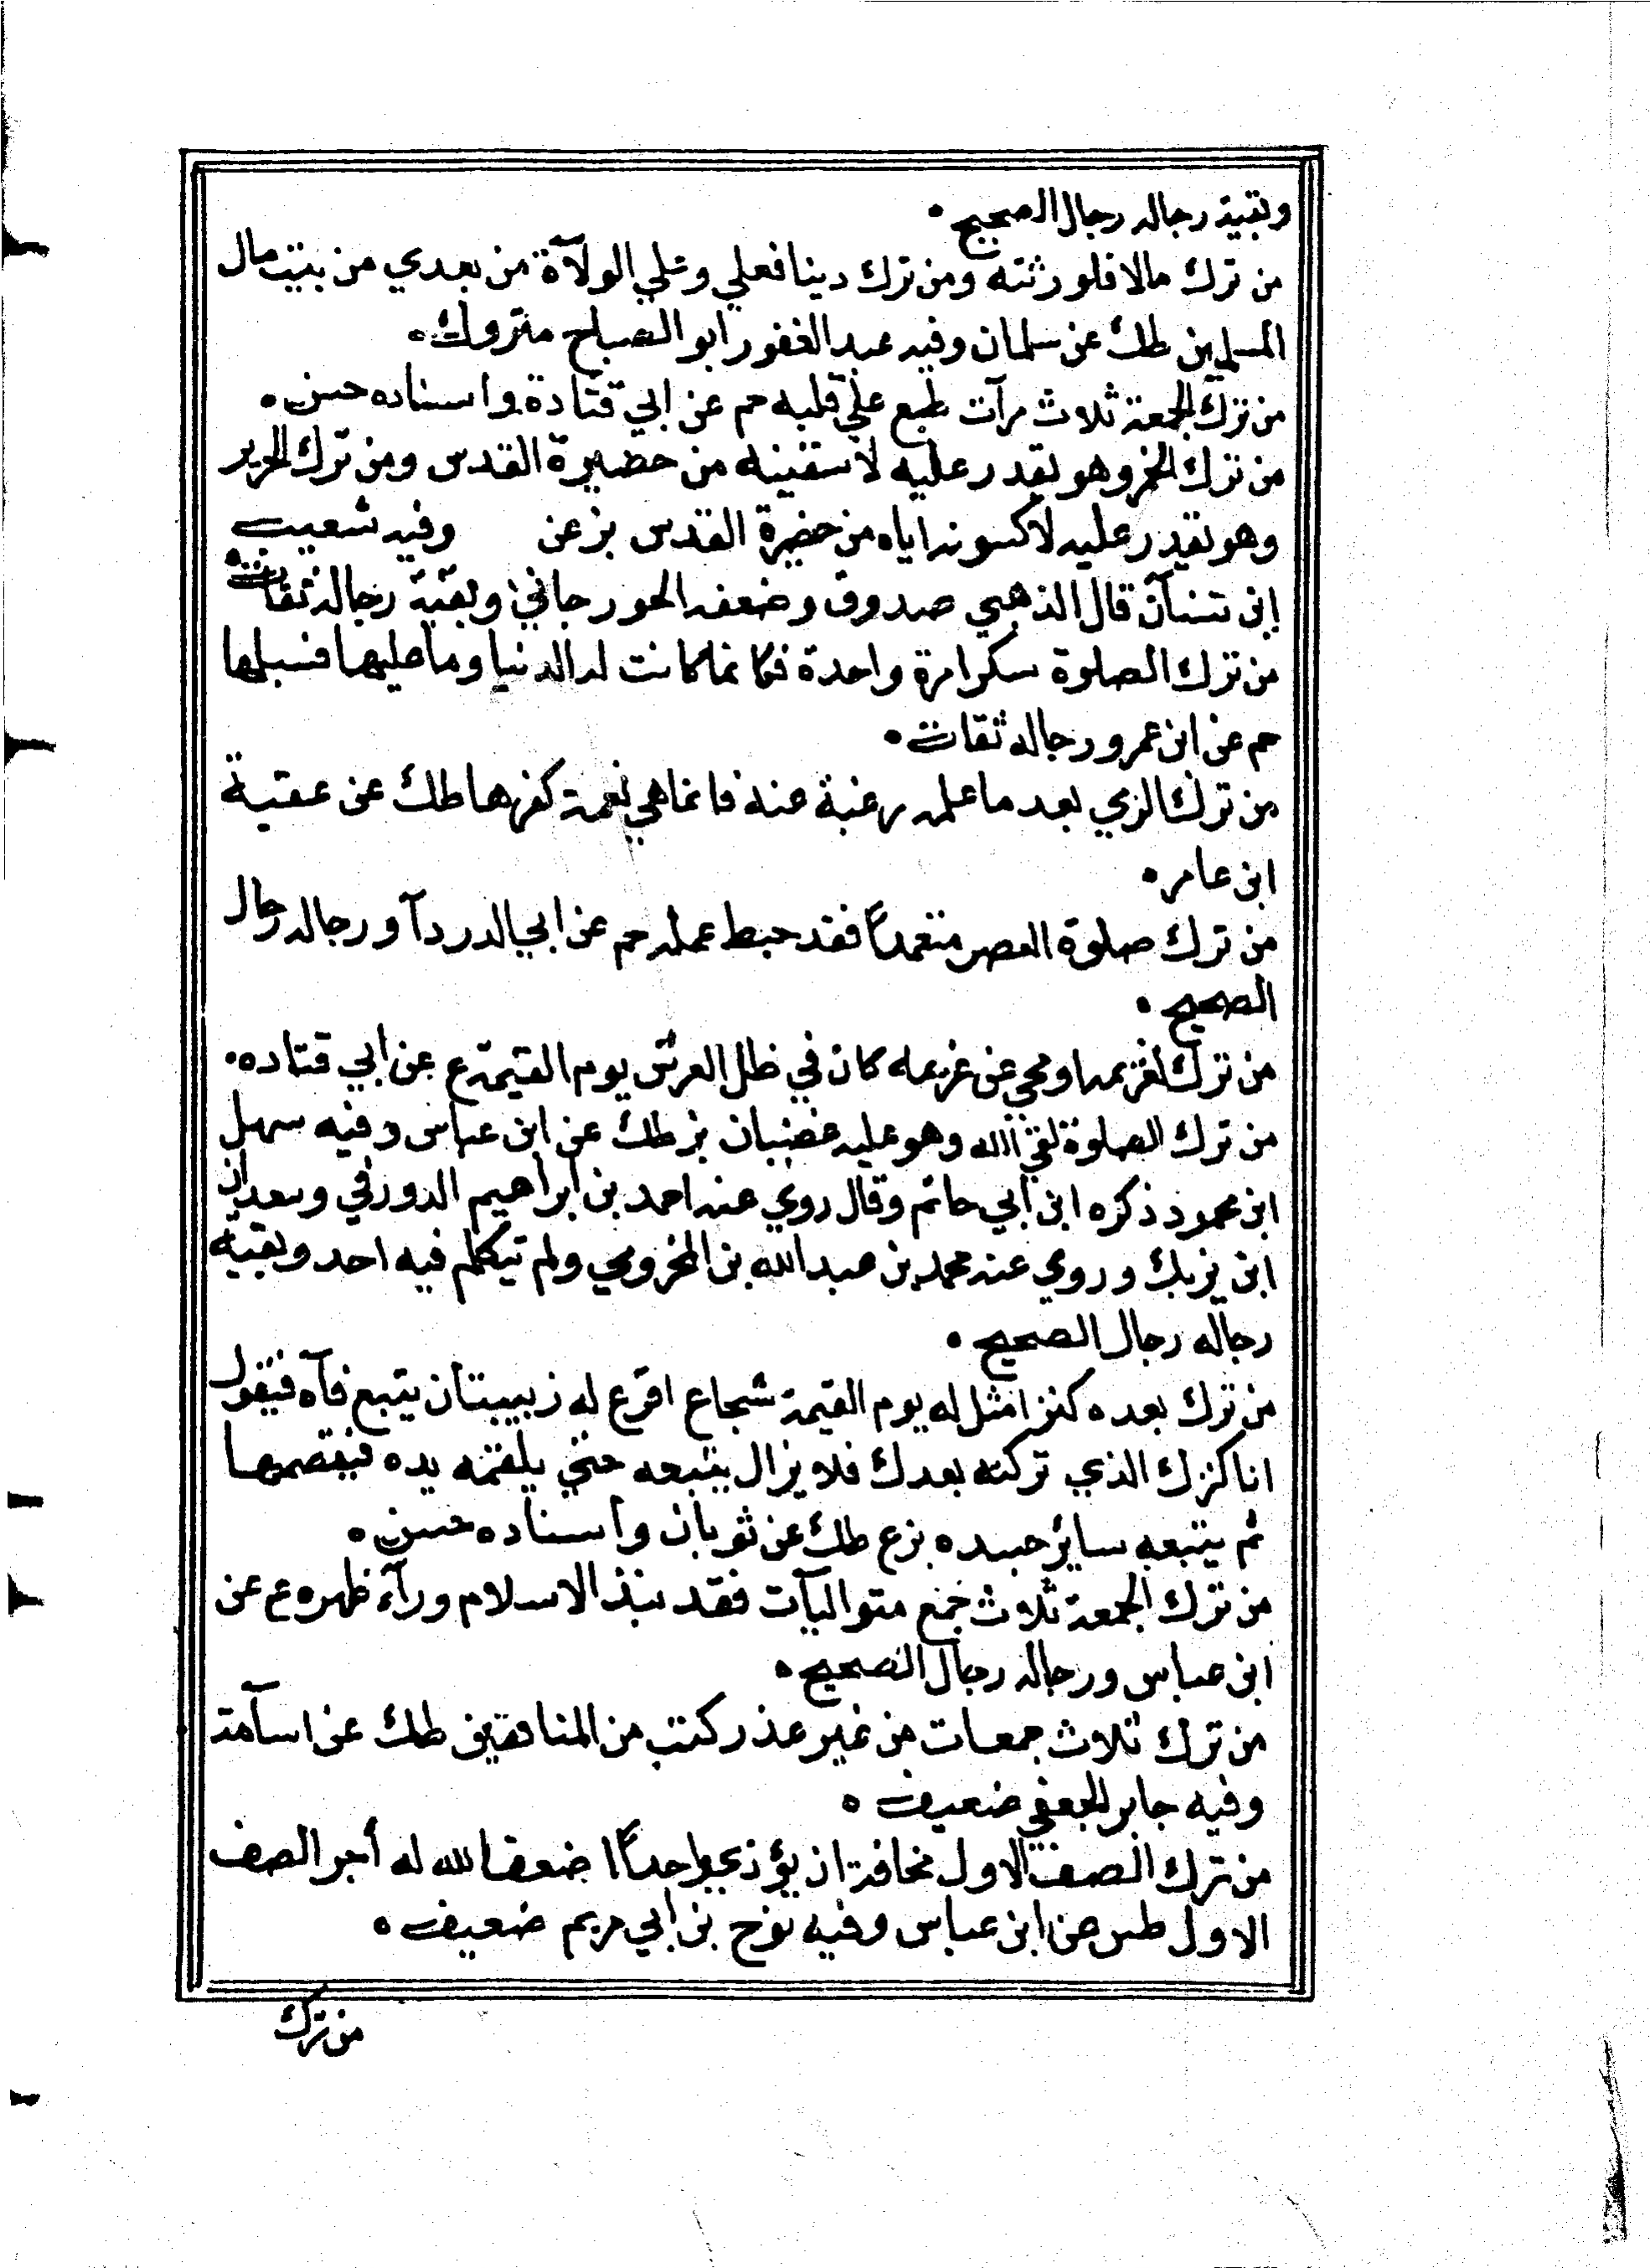 وبقية رجاله رجال الصحيح ۰
من ترك مالا فلورثته ومن ترك دينا فعلي وعلي الولآة من بعدي من بيت مال
المسلمين طك عن سلمان وفيه عبد الغفور ابو الصباح متروك ۰
من ترك الجمعة ثلاث مرآت طبع علي قلبه حم عن ابي قتادة واسناده حسن ۰
من ترك الخمر وهو يقدر عليه لاسقينه من حضيرة القدس ومن ترك الحرير
وهو يقدر عليه لاكسونه اياه من حضيرة القدس بز عن وفيه شعيب
ابن بيان قال الذهبي صدوق وضعفه الجورجاني وبقية رجاله ثقات ۰
من ترك الصلوة سكرا مرة واحدة فكانما كانت له الدنيا وما عليها فسبلها
حم عن ابن عمرو رجاله ثقات ۰
من ترك الرمي بعد ما علمه رغبة عنه فانما هي نعمة كفرها طك عن عقبة
ابن عامر ۰
من ترك صلوة العصر متعمدًا فقد حبط عمله حم عن ابي الدردآ ورجاله رجال
الصحيح ۰
من ترك لغريمه او محي عن غريمه كان في ظل العرش يوم القيمة ع عن ابي قتاده ۰
من ترك الصلوة لقي الله وهو عليه غضبان بز طك عن ابن عباس وفيه سهل
ابن محمود ذكره ابن ابي حاتم وقال روي عنه احمد بن ابراهيم الدورقي وسعدان
ابن يزيك وروي عنه محمد بن عبد الله بن المخرومي ولم يتكلم فيه احد وبقية
رجاله رجال الصحيح ۰
من ترك بعده كنزا مثل له يوم القيمة شجاع اقرع له زبيبتان يتبع فآه فيقول
انا كنزك الذي تركته بعدك فلا يزال يتبعه حتي يلقمه يده فيقصمها
ثم يتبعه سائر جسده بز ع طك عن ثوبان واسناده حسن ۰
من ترك الجمعة ثلاث جمع متواليآت فقد نبذ الاسلام ورآء ظهره ع عن
ابن عباس ورجاله رجال الصحيح ۰
من ترك ثلاث جمعات من غير عذر كتب من المنافقين طك عن اسآمة
وفيه جابر الجعفي ضعيف ۰
من ترك الصف الاول مخافة ان يؤذي واحدًا اضعف الله له أجر الصف
الاول طس عن ابن عباس وفيه نوح بن ابي مريم ضعيف ۰
من ترك